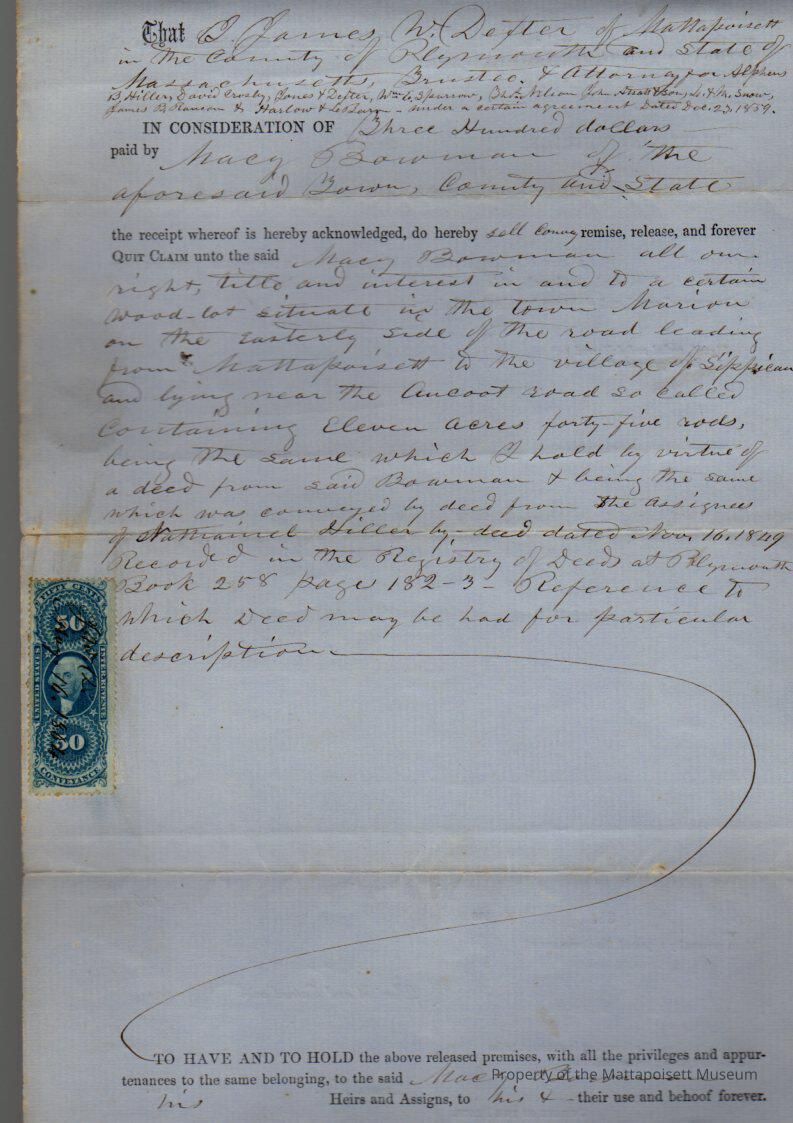 That I James W. Dexter of Mattapoisett
in the County of Plymouth and State of
Massachusetts, Trustee & Attorney for Alpheus
B. Hiller, David Crosby, Jones & Dexter, Wm. C. Sparrow, Nelson John & Son, L. & M. Snow,
James B. & Harlow & LeBaron under a certain agreement Dated Dec. 23, 1859.
IN CONSIDERATION OF Three Hundred dollars
paid by Macy Bowman of the
aforesaid Town, County and State
the receipt whereof is hereby acknowledged, do hereby sell convey remise, release, and forever
QUIT CLAIM unto the said Macy Bowman all our
right, title and interest in and to a certain
wood-lot situate in the town Marion
on the easterly side of the road leading
from Mattapoisett to the village of Sippican
and lying near the Aucoot road so called
Containing Eleven Acres forty-five rods,
being the same which I hold by virtue of
a deed from said Bowman & being the same
which was conveyed by deed from the assignees
of Nathaniel Hiller by deed dated Nov. 16. 1849
Recorded in the Registry of Deeds at Plymouth
Book 258 page 182-3- Reference to
which Deed may be had for particular
description
FIFTY CENTS
50
UNITED STATES
INTER. REVENUE
16. 
50
CONVEYANCE
TO HAVE AND TO HOLD the above released premises, with all the privileges and appur-
tenances to the same belonging, to the said Macy Bowman
Property of the Mattapoisett Museum
his Heirs and Assigns, to his & their use and behoof forever.